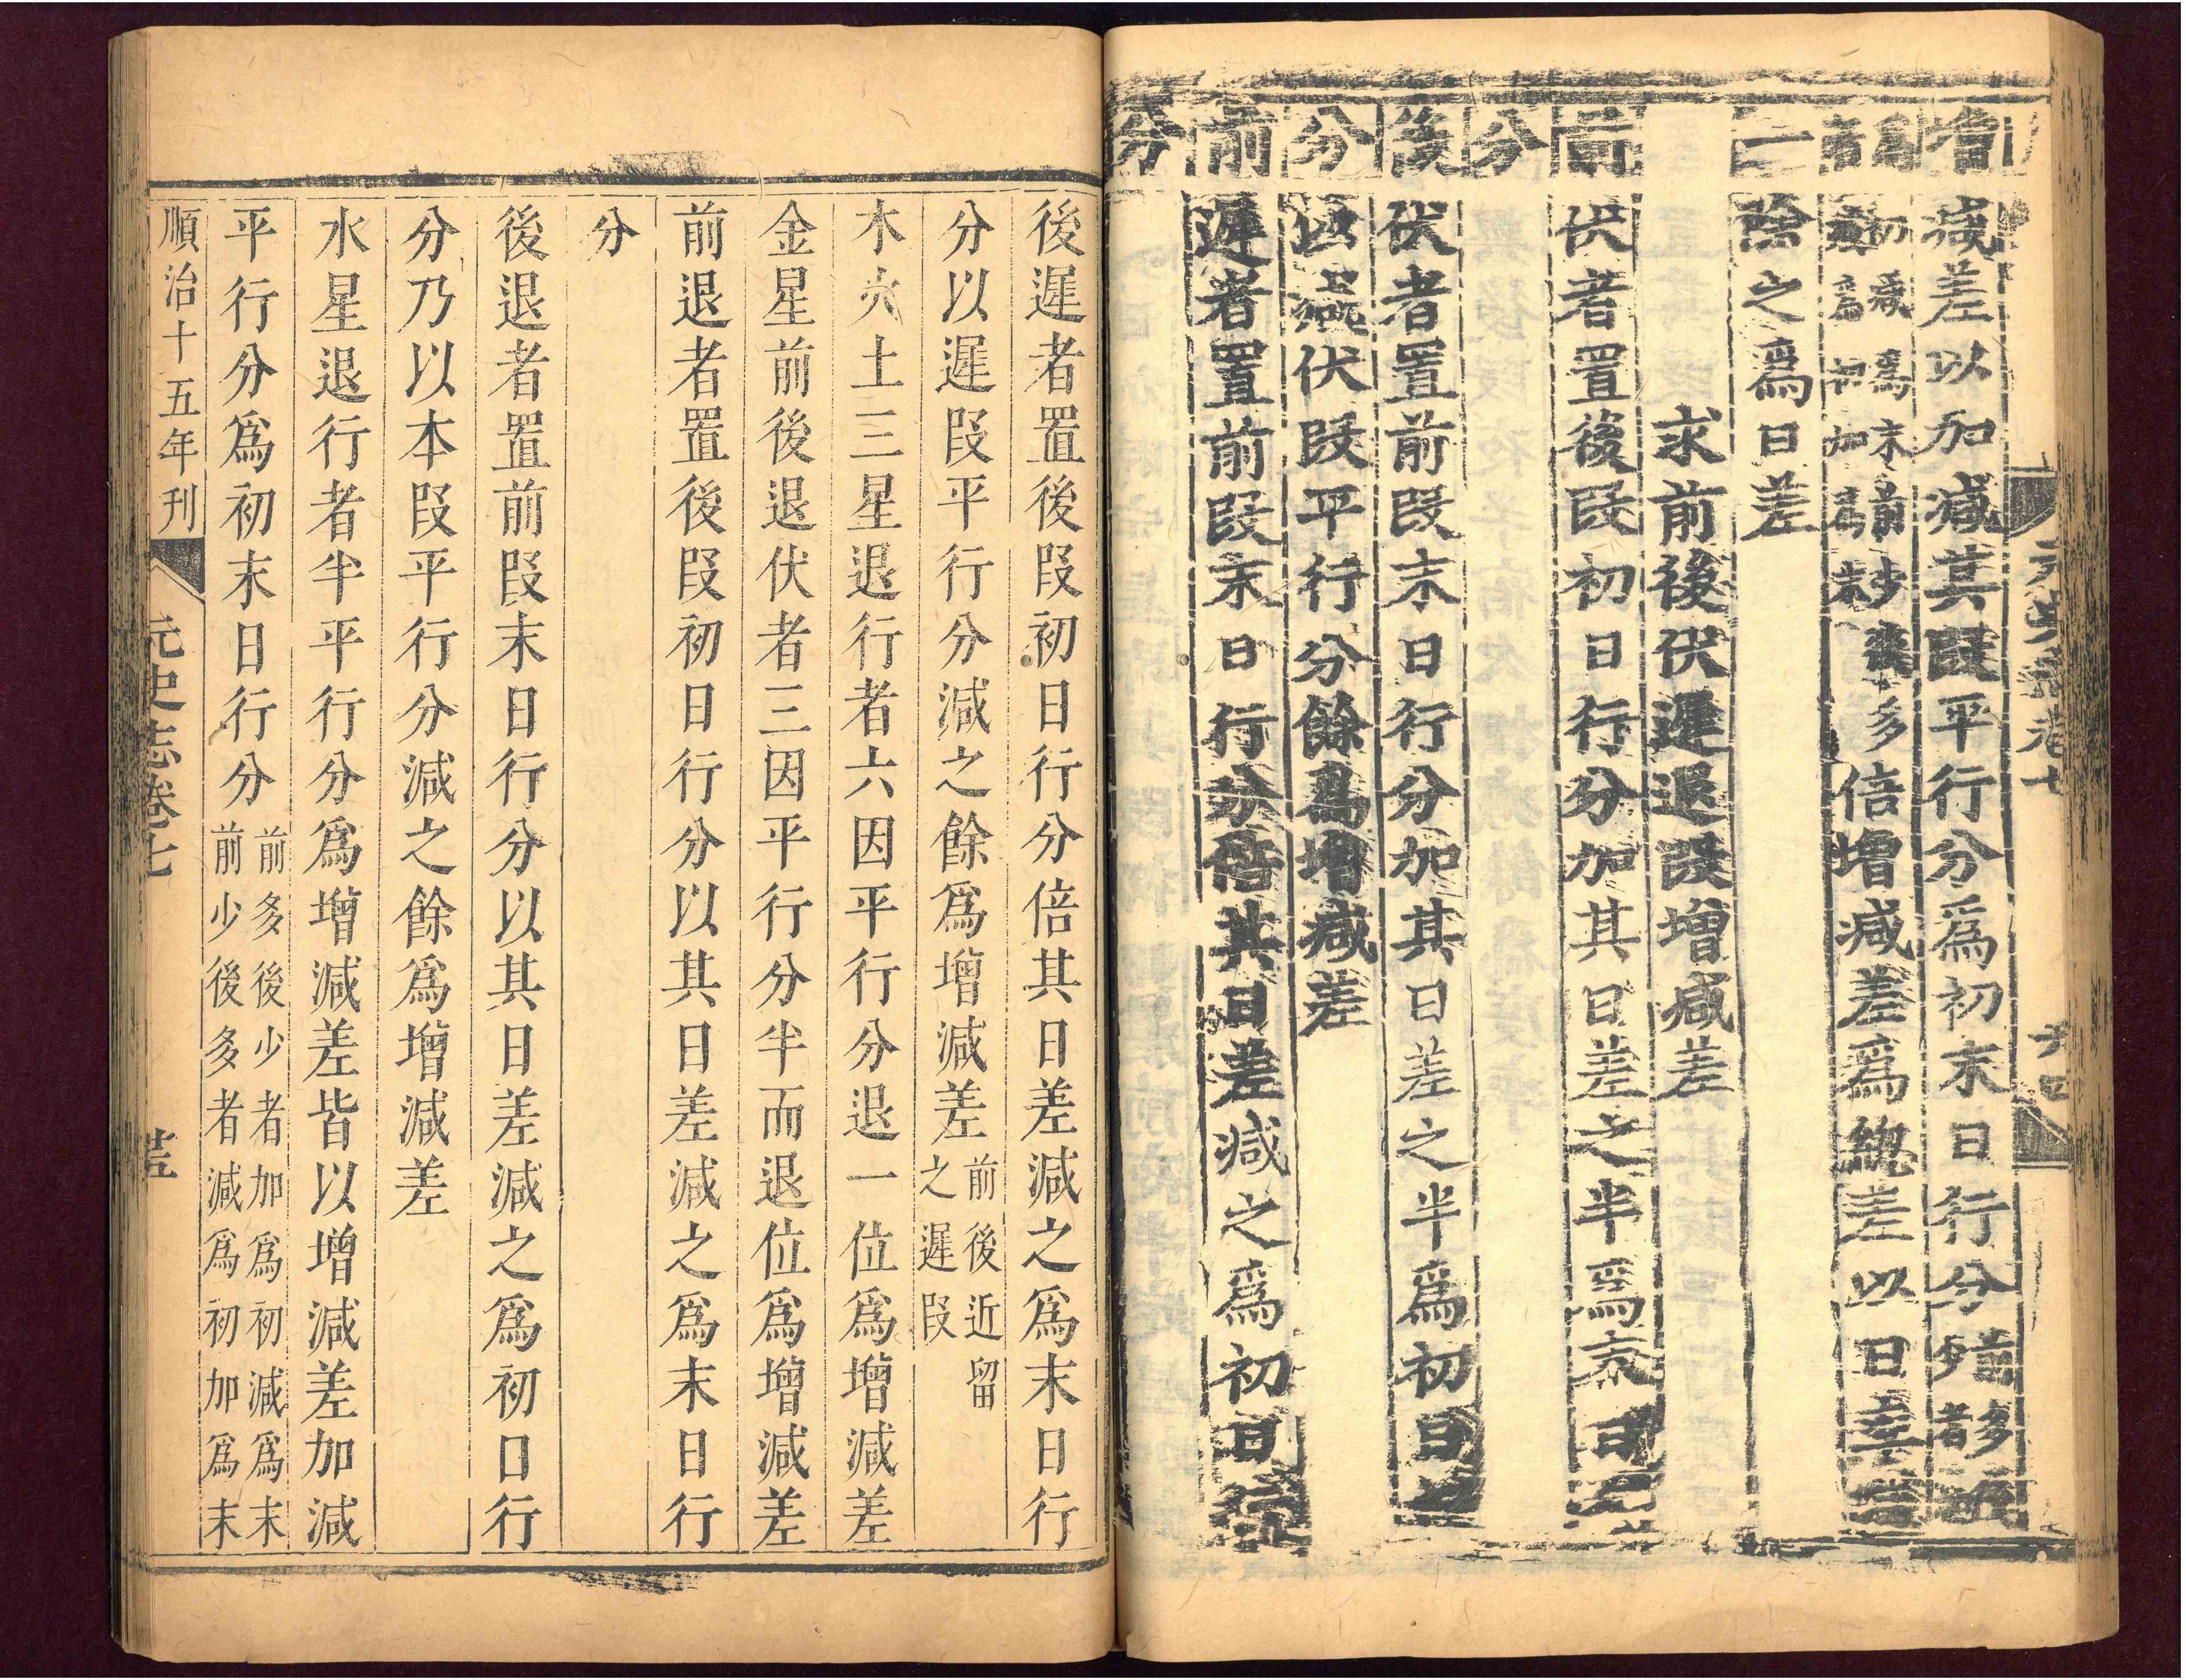 增減差以加減其段平行分爲初末日行分
倍增減差爲總差以日率
一除之爲日差
求前後伏遲退段增減差
前伏者置後段初日行分加其日差之半爲末日
分
後伏者置前段末日行分加其日差之半爲初日
分以減伏段平行分餘爲增減差
前遲者置前段末日行分倍其日差減之爲初日行
分
後遲者置後段初日行分倍其日差減之爲末日行
分以遲段平行分減之餘爲增減差前後近留之遲段
木火土三星退行者六因平行分退一位爲增減差
金星前後退伏者三因平行分半而退位爲增減差
前退者置後段初日行分以其日差減之爲末日行
分
後退者置前段末日行分以其日差減之爲初日行
分乃以本段平行分減之餘爲增減差
水星退行者半平行分爲增減差皆以增減差加減
平行分爲初末日行分前多後少者加爲初減爲末前少後多者減爲初加爲末
順治十五年刊 元史志卷七